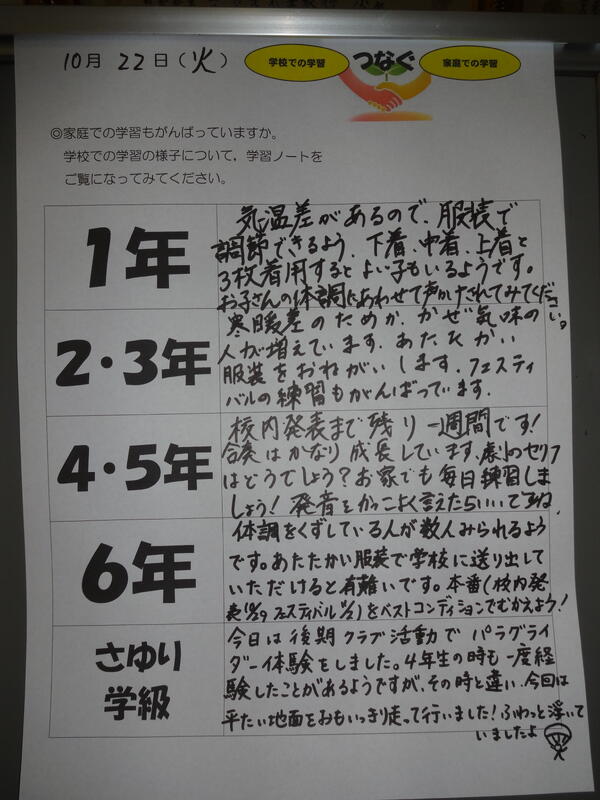 10月 22日(火)
学校での学習
つなぐ
家庭での学習
◎家庭での学習もがんばっていますか。
学校での学習の様子について、学習ノートを
ご覧になってみてください。
1年
気温差があるので、服装で
調節できるよう、下着、中着、上着と
3枚着用するとよい子もいるようです。
お子さんの体調にあわせて声かけされてみてください。
2・3年
寒暖差のためか、かぜ気味の
人が増えています。あたたかい
服装をおねがいします。フェスティ
バルの練習もがんばっています。
4・5年
校内発表まで残り一週間です!
合奏はかなり成長しています。劇のセリフ
はどうでしょう?お家でも毎日練習しま
しょう!発音をかっこよく言えたらいいですね。
6年
体調をくずしている人が数人みられるよう
です。あたたかい服装で学校に送り出して
いただけると有難いです。本番(校内発
表10/29 フェスティバル11/2)をベストコンディションでむかえよう!
さゆり
学級
今日は後期クラブ活動でパラグライ
ダー体験をしました。4年生の時も一度経
験したことがあるようですが、その時と違い、今回は
平たい地面をおもいっきり走って行いました!ふわっと浮いて
いましたよ